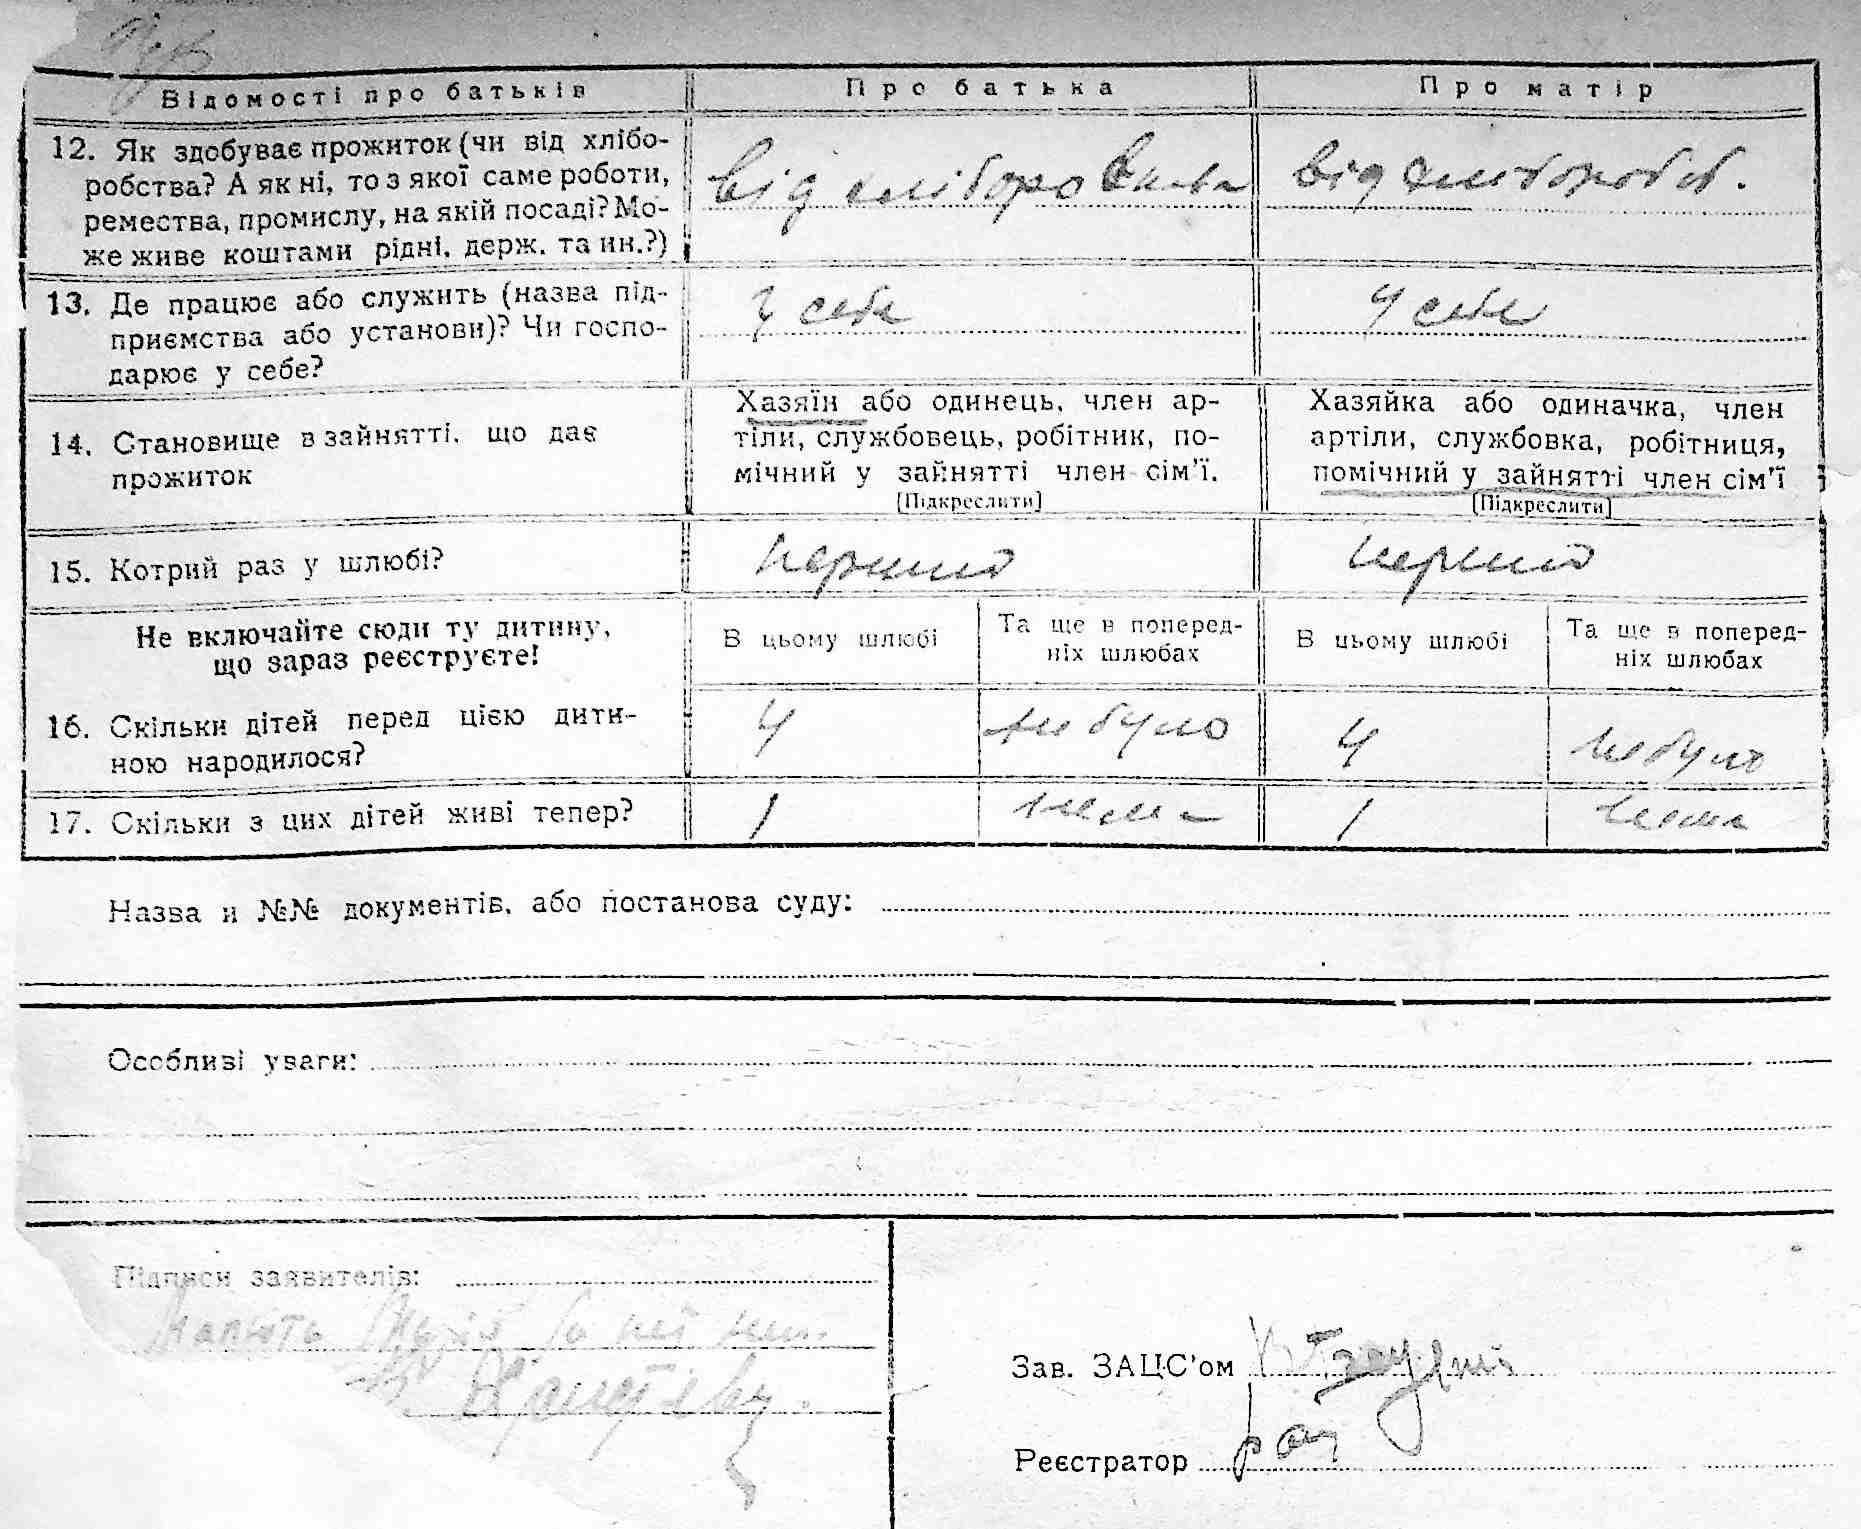 Відомості про батьків
Про батька
Про матір
12. Як здобуває прожиток (чи від хлібо-
робства? А як ні, то з якої саме роботи,
ремества, промислу, на якій посаді? Мо-
же живе коштами рідні, держ. та ин.?)
від хліборобства
від хлібороб.
13. Де працює або служить (назва під-
приємства або установи)? Чи госпо-
дарює у себе?
У себе
У себе
14. Становище в зайнятті, що дає
прожиток
Хазяїн або одинець, член ар-
тіли, службовець, робітник, по-
мічний у зайнятті член сім'ї.
[Підкреслити]
Хазяйка або одиначка, член
артіли, службовка, робітниця,
помічний у зайнятті член сім'ї
[Підкреслити]
15. Котрий раз у шлюбі?
перший
перший
Не включайте сюди ту дитину,
що зараз реєструєте!
В цьому шлюбі
Та ще в поперед-
ніх шлюбах
В цьому шлюбі
Та ще в поперед-
ніх шлюбах
16. Скільки дітей перед цією дити-
ною народилося?
4
не було
4
не було
17. Скільки з цих дітей живі тепер?
1
нема
1
нема
Назва и №№ документів, або постанова суду:
Особливі уваги:
Підписи заявителів:
за неї
Зав. ЗАЦС'ом
Реєстратор